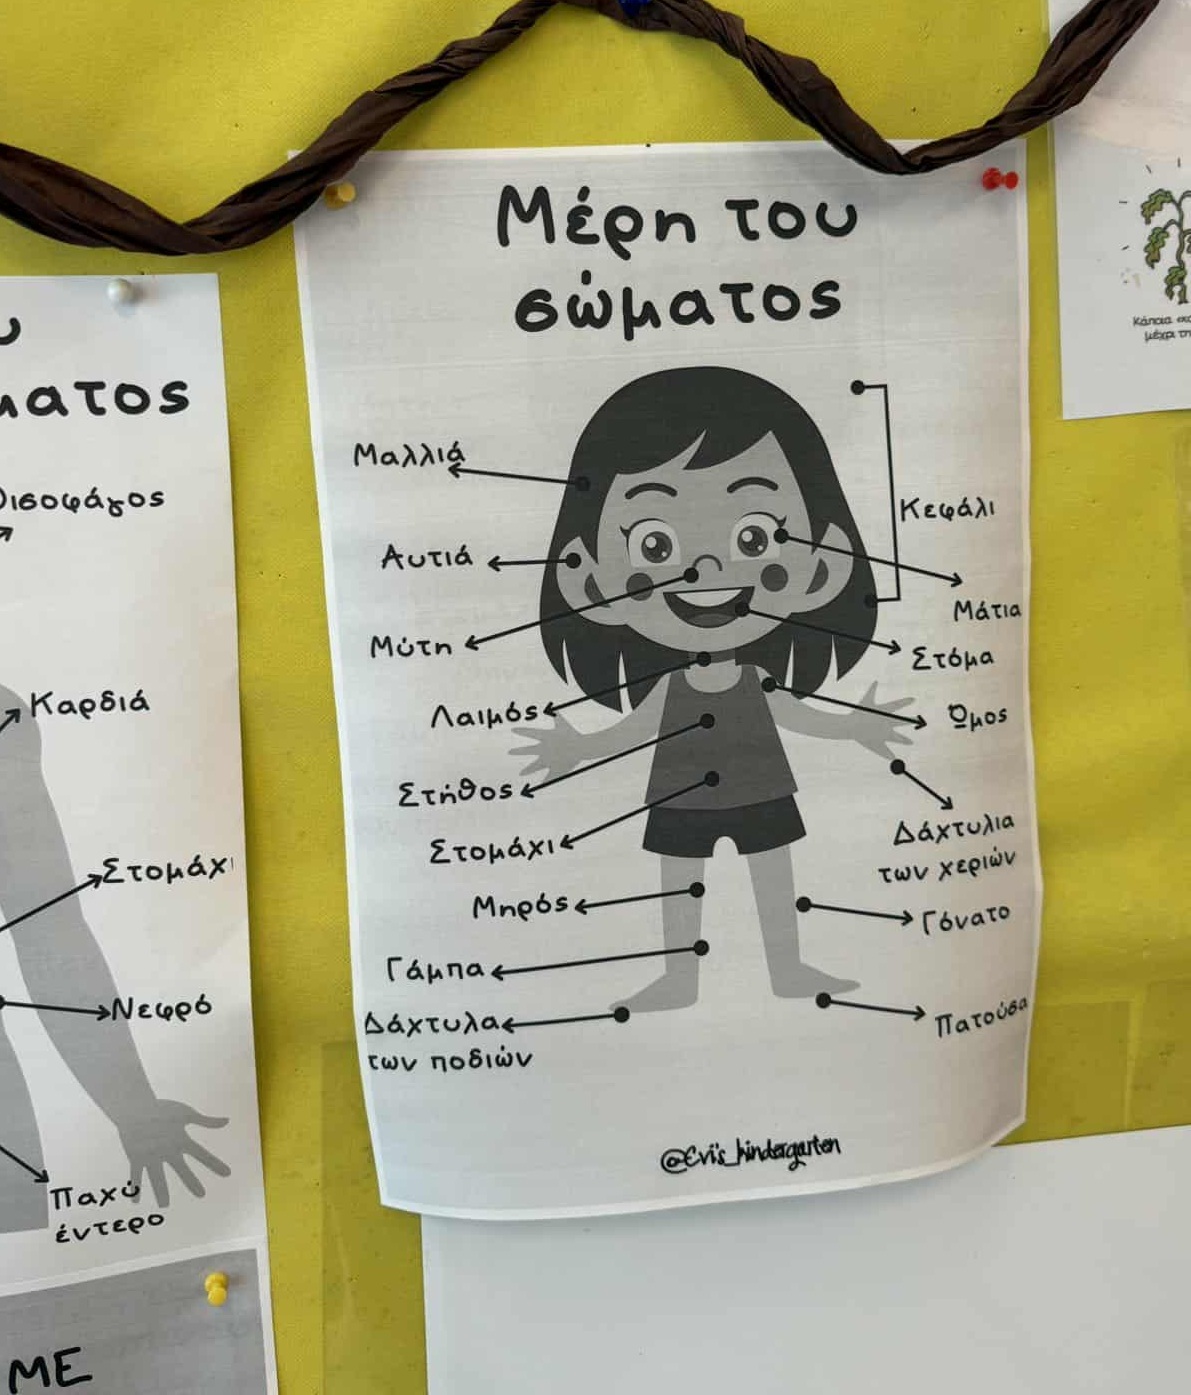 Μέρη του
σώματος
Μαλλιά
Αυτιά
Μύτη
Λαιμός
Στήθος
Στομάχι
Μηρός
Γάμπα
Δάχτυλα
των ποδιών
Κεφάλι
Μάτια
Στόμα
Ώμος
Δάχτυλια
των χεριών
Γόνατο
Πατούσα
@Evi's_kindergarten
Καρδιά
Στομάχι
Νεφρό
Παχύ
έντερο
ΜΕ
Κάποια
μέχρι